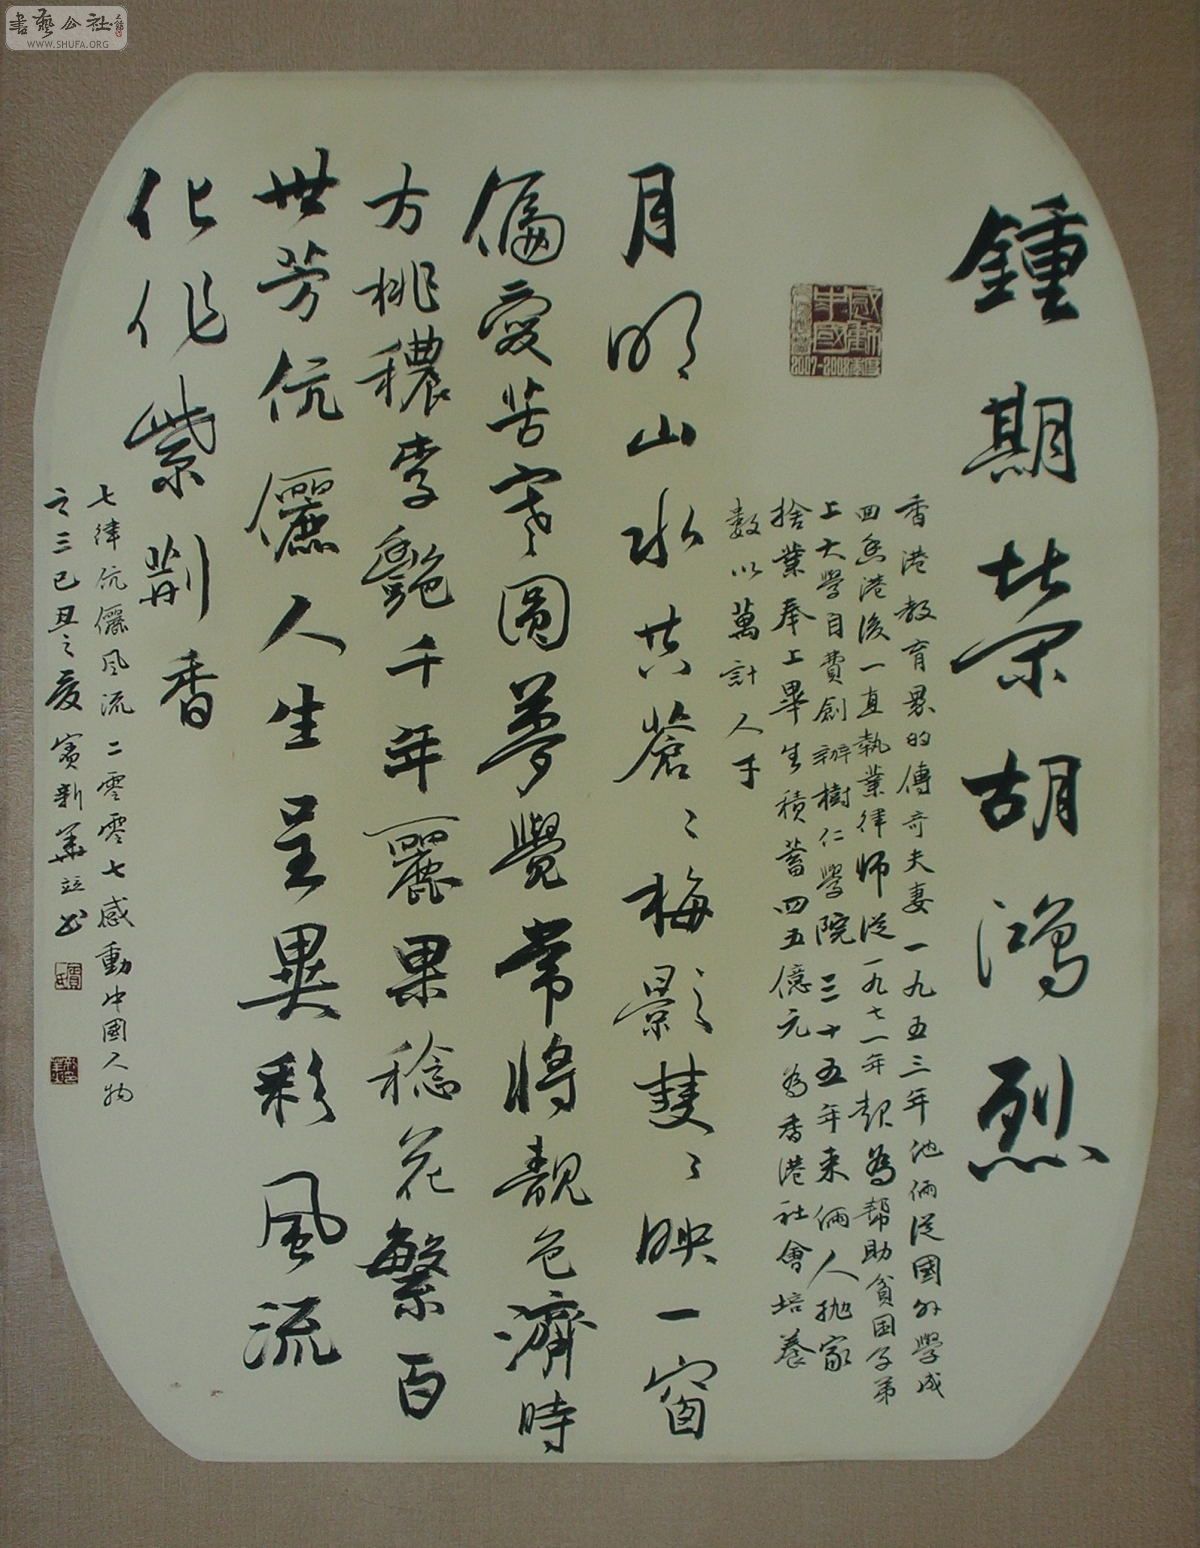 鍾期榮胡鴻烈
香港教育界的傳奇夫妻一九五三年他倆從國外學成
回香港後一直執業律師從一九七一年起為幫助貧困子弟
上大學自費創辦樹仁學院三十五年來倆人拋家
捨業奉上畢生積蓄四五億元為香港社會培養
數以萬計人才
感動中國
2007-2008
月明山水共蒼蒼梅影雙雙映一窗
偏愛苦寒圓夢覺常將靚色濟時
方桃穠李艷千年麗果稔花繁百
世芳伉儷人生呈異彩風流
化作紫荊香
七律伉儷風流二零零七感動中國人物
之三己丑之夏賓新華並書
書藝公社
WWW.SHUFA.ORG